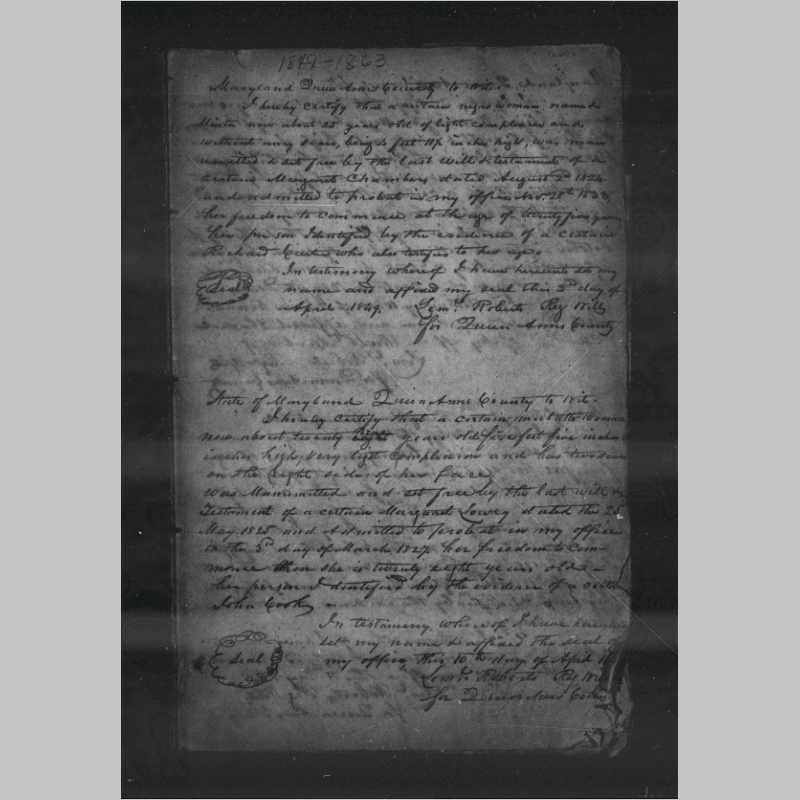 1849-1863
Maryland Queen Anns County to wit.
I hereby certify that a certain negro woman named
now about 25 years old of light complexion and
without any scars, being 5 feet inches high, was man
umitted & set free by the last will & testament of a
certain Margaret Chambers dated August 2nd
and admitted to probate in my office Nov. 28th 1833
her freedom to commence at the age of twenty five years
her person Identified by the evidence of a certain
Richard who also testifies to her age.
In testimony whereof I have hereunto set my
Seal
name and affixed my seal this 3rd day of
April 1849. Roberts Reg Wills
for Queen Anns County
State of Maryland Queen Anns County to wit.
I hereby certify that a certain mulatto woman
now about twenty eight years old five feet five inches
inches high, very light complexion and has two
on the right side of her face
was Manumitted and set free by the last will &
Testiment of a certain Margaret Lowry dated the 25
May 1825 and Admitted to probate in my office
on the 3rd day of March 1827 her freedom to Com-
mence when she is twenty eight years old -
her person Identified by the evidence of a
John Cook
In testimony whereof I have hereunto
set my name & affixed the seal of
Seal
my office this 10th day of April
Roberts Reg
for Queen Anns County